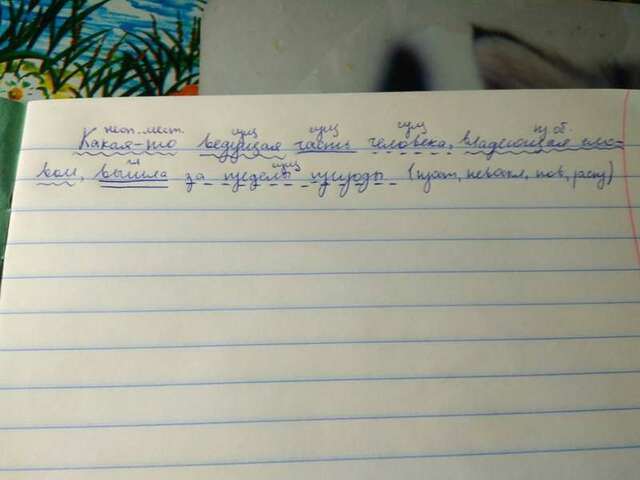 неоп. мест. сущ сущ сущ пр. об.
Какая-то ведущая часть человека, владеющая сло-
гл сущ
вом, вышла за пределы природы. (прост, невоскл, пов, расп)